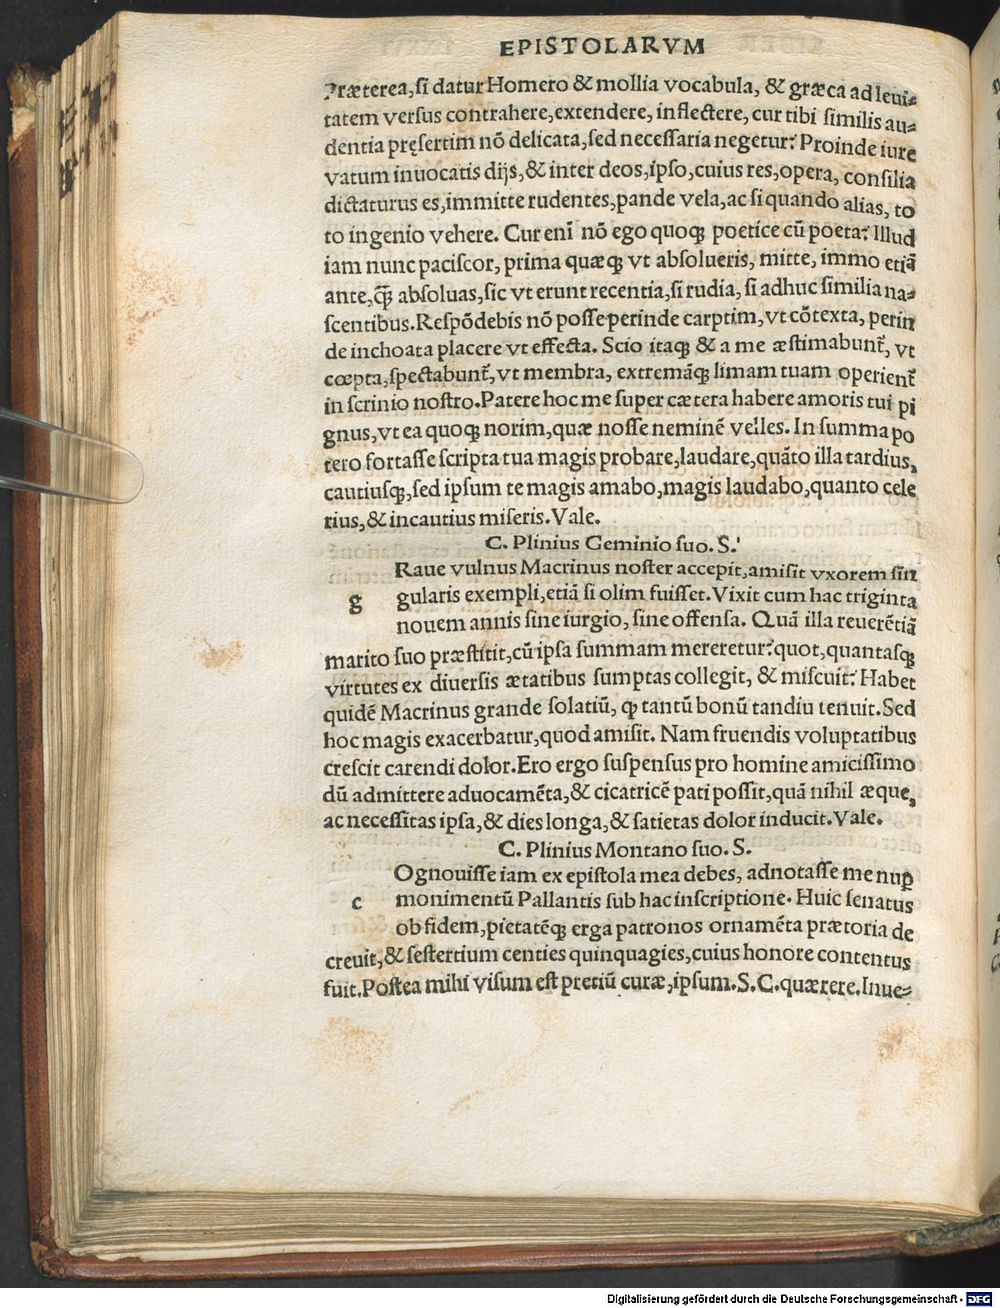 EPISTOLARVM
Præterea, si datur Homero & mollia vocabula, & græca ad leui-
tatem versus contrahere, extendere, inflectere, cur tibi similis au-
dentia pręsertim nō delicata, sed necessaria negetur? Proinde iure
vatum inuocatis dijs, & inter deos, ipso, cuius res, opera, consilia
dictaturus es, immitte rudentes, pande vela, ac si quando alias, to
to ingenio vehere. Cur enī nō ego quoq; poetice cū poeta? Illud
iam nunc paciscor, prima quæq; vt absolueris, mitte, immo etiā
ante, q̄ꝫ absoluas, sic vt erunt recentia, si rudia, si adhuc similia na-
scentibus. Respōdebis nō posse perinde carptim, vt cōtexta, perin
de inchoata placere vt effecta. Scio itaq; & a me æstimabunt̃, vt
cœpta, spectabunt̃, vt membra, extremāq; limam tuam operient̃
in scrinio nostro. Patere hoc me super cætera habere amoris tui pi
gnus, vt ea quoq; norim, quæ nosse neminē velles. In summa po
tero fortasse scripta tua magis probare, laudare, quāto illa tardius,
cautiusq;, sed ipsum te magis amabo, magis laudabo, quanto cele
rius, & incautius miseris. Vale.
C. Plinius Geminio suo. S.
Raue vulnus Macrinus noster accepit, amisit vxorem sin
g gularis exempli, etiā si olim fuisset. Vixit cum hac triginta
nouem annis sine iurgio, sine offensa. Quā illa reuerētiā
marito suo præstitit, cū ipsa summam mereretur? quot, quantasq;
virtutes ex diuersis ætatibus sumptas collegit, & miscuit? Habet
quidē Macrinus grande solatiū, ꝙ tantū bonū tandiu tenuit. Sed
hoc magis exacerbatur, quod amisit. Nam fruendis voluptatibus
crescit carendi dolor. Ero ergo suspensus pro homine amicissimo
dū admittere aduocamēta, & cicatricē pati possit, quā nihil æque,
ac necessitas ipsa, & dies longa, & satietas dolor inducit. Vale.
C. Plinius Montano suo. S.
Ognouisse iam ex epistola mea debes, adnotasse me nuꝑ
c monimentū Pallantis sub hac inscriptione. Huic senatus
ob fidem, pietatēq; erga patronos ornamēta prætoria de
creuit, & sestertium centies quinquagies, cuius honore contentus
fuit. Postea mihi visum est pretiū curæ, ipsum. S. C. quærere. Inue-
Digitalisierung gefördert durch die Deutsche Forschungsgemeinschaft - DFG